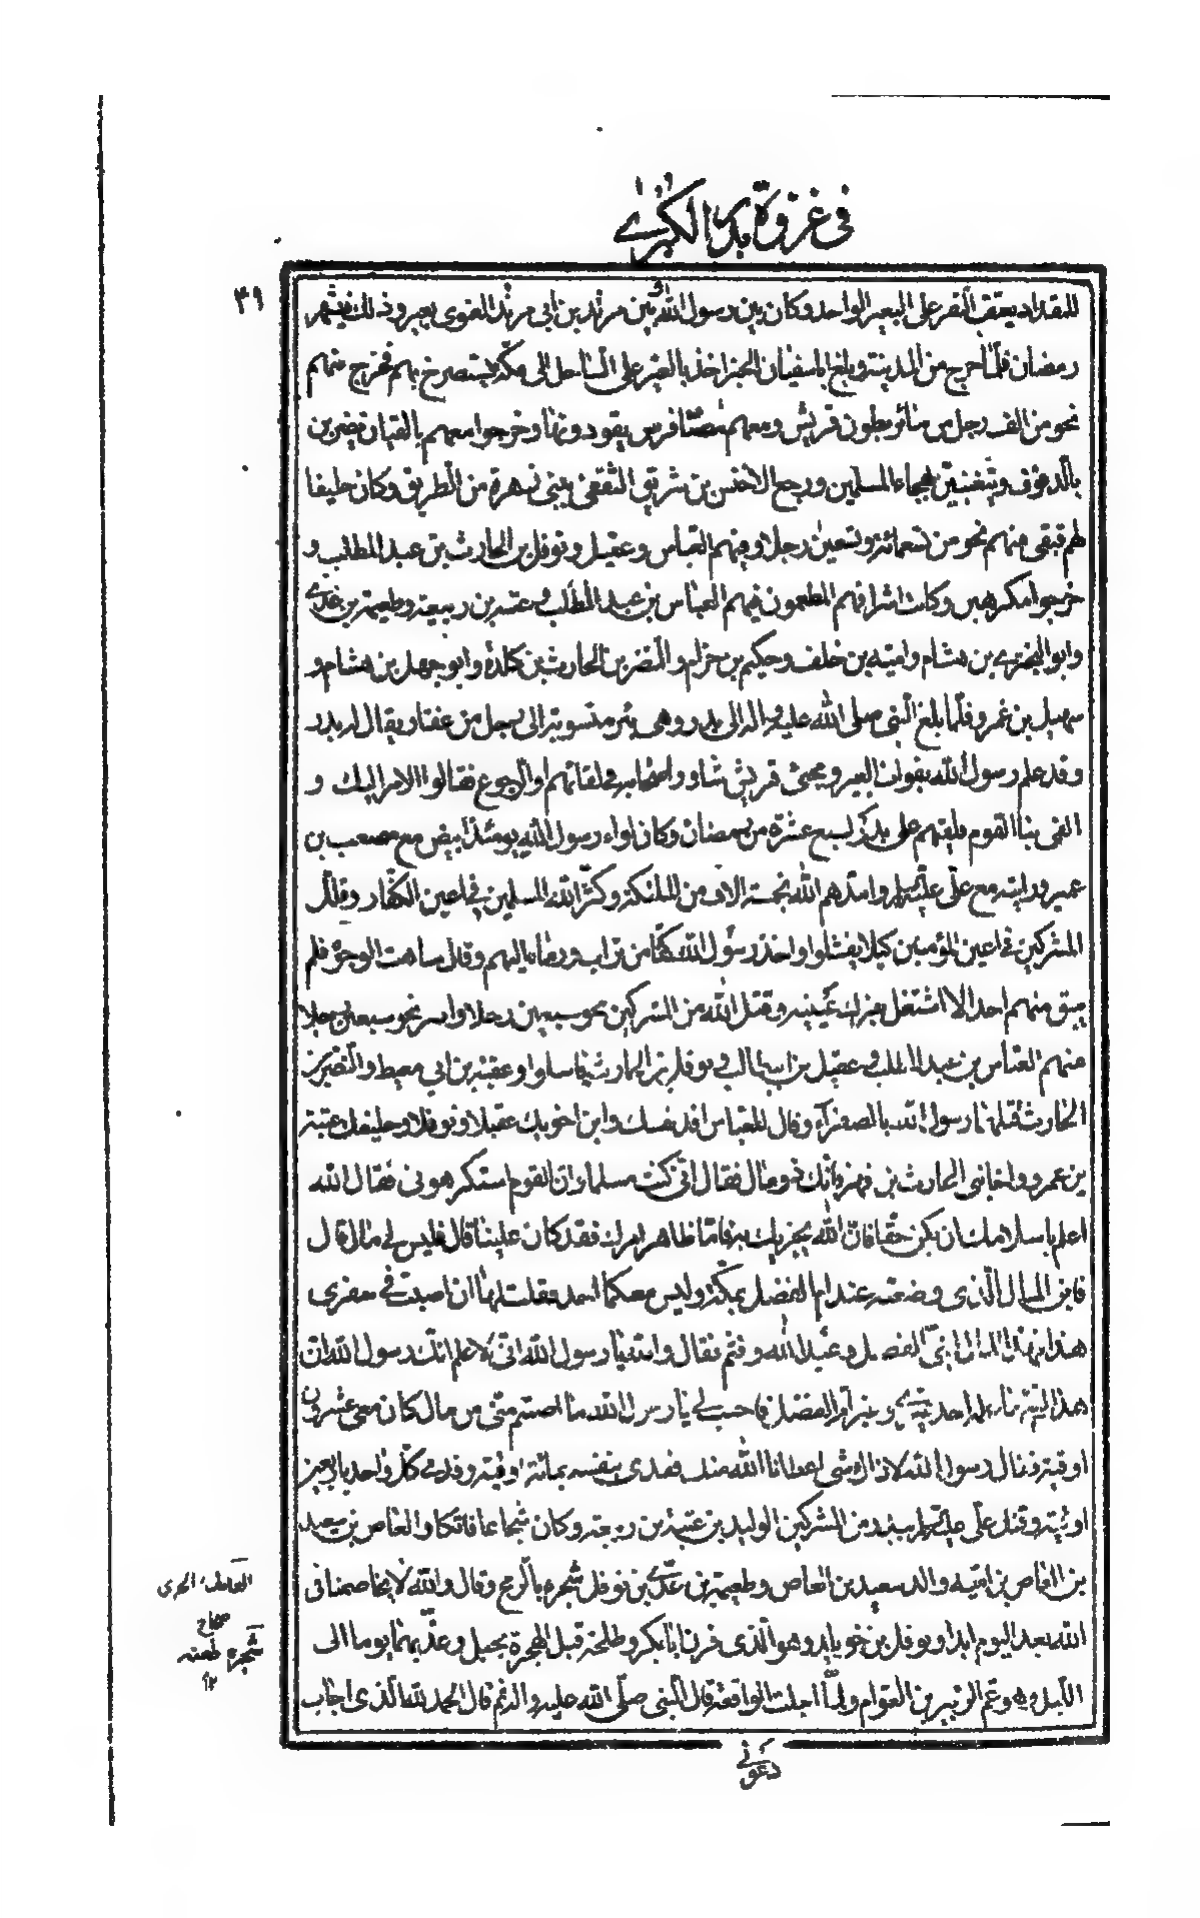 في غزوة بدر الكبرى
٤٩
للمقداد يعتقب النفر على البعير الواحد وكان بين رسول الله وبين مرثد بن ابي مرثد الغنوي بعير وذلك في شهر
رمضان فلما خرج من المدينة وبلغ ابا سفيان الخبر اخذ بالعير على الساحل الى مكة يستصرخ بهم فخرج منهم
نحو من الف رجل من سائر بطون قريش ومعهم مائتا فرس يقودونها وخرجوا معهم بالقيان يضربن
بالدفوف ويتغنين بهجاء المسلمين ورجع الاخنس بن شريق الثقفي ببني زهرة من الطريق وكان حليفا
لهم فبقي منهم نحو من تسعمائة وتسعين رجلا وفيهم العباس وعقيل ونوفل بن الحارث بن عبد المطلب و
خرجوا مكرهين وكانت اشرافهم المطعمون فيهم العباس بن عبد المطلب وعتبة بن ربيعة وطعيمة بن عدي
وابو البختري بن هشام وامية بن خلف وحكيم بن حزام والنضر بن الحارث بن كلدة وابو جهل بن هشام و
سهيل بن عمرو فلما بلغ النبي صلى الله عليه واله الى بدر وهي بئر منسوبة الى رجل من غفار يقال له بدر
وقد علم رسول الله بفوات العير ومجيئ قريش شاور اصحابه في لقائهم او الرجوع فقالوا الامر اليك و
الق بنا القوم فلقيهم على بدر لسبع عشرة من رمضان وكان لواء رسول الله يومئذ ابيض مع مصعب بن
عمير ورايته مع علي وامدهم الله بخمسة الاف من الملئكة وكثر الله المسلمين في اعين الكفار وقلل
المشركين في اعين المؤمنين كيلا يفشلوا واخذ رسول الله كفا من تراب ورماه اليهم وقال شاهت الوجوه فلم
يبق منهم احد الا اشتغل بفرك عينيه وقتل الله من المشركين نحو سبعين رجلا واسر نحو سبعين رجلا
منهم العباس بن عبد المطلب وعقيل بن ابيطالب ونوفل بن الحارث فاسلموا وعقبة بن ابي معيط والنضر بن
الحارث قتلهما رسول الله بالصفراء وقال للعباس افد نفسك وابن اخويك عقيلا ونوفلا وحليفك عتبة
بن عمرو واخا بني الحارث بن فهر فانك ذو مال فقال اني كنت مسلما وان القوم استكرهوني فقال الله
اعلم باسلامك ان يكن حقا فان الله يجزيك به فاما ظاهر امرك فقد كان علينا قال فليس لي مال قال
فاين المال الذي وضعته عند ام الفضل بمكة وليس معكما احد فقلت لها ان اصبت في سفري
هذا فهذا المال لبني الفضل وعبد الله وقثم فقال والله يا رسول الله اني لاعلم انك رسول الله ان
هذا لشيئ ما علمه احد غيري وغير ام الفضل فاحسب لي يا رسول الله ما اصبتم مني من مال كان معي عشرون
اوقية فقال رسول الله لا ذاك شئ اعطانا الله منك ففدى نفسه بمائة اوقية وفدى كل واحد باربعين
اوقية وقتل علي ببدر من المشركين الوليد بن عتبة بن ربيعة وكان شجاعا فاتكا والعاص بن سعيد
بن العاص بن امية والد سعيد بن العاص وطعيمة بن عدي بن نوفل شجره بالرمح وقال والله لا يخاصمنا في
الله بعد اليوم ابدا ونوفل بن خويلد وهو الذي قرن ابا بكر وطلحة قبل الهجرة بحبل وعذبهما يوما الى
الليل وهو عم الزبير بن العوام ولما اجلت الواقعة قال النبي صلى الله عليه واله ثم قال الحمد لله الذي اجاب
الجري
صحاح
شجره طعنه
١٢
دعوتي